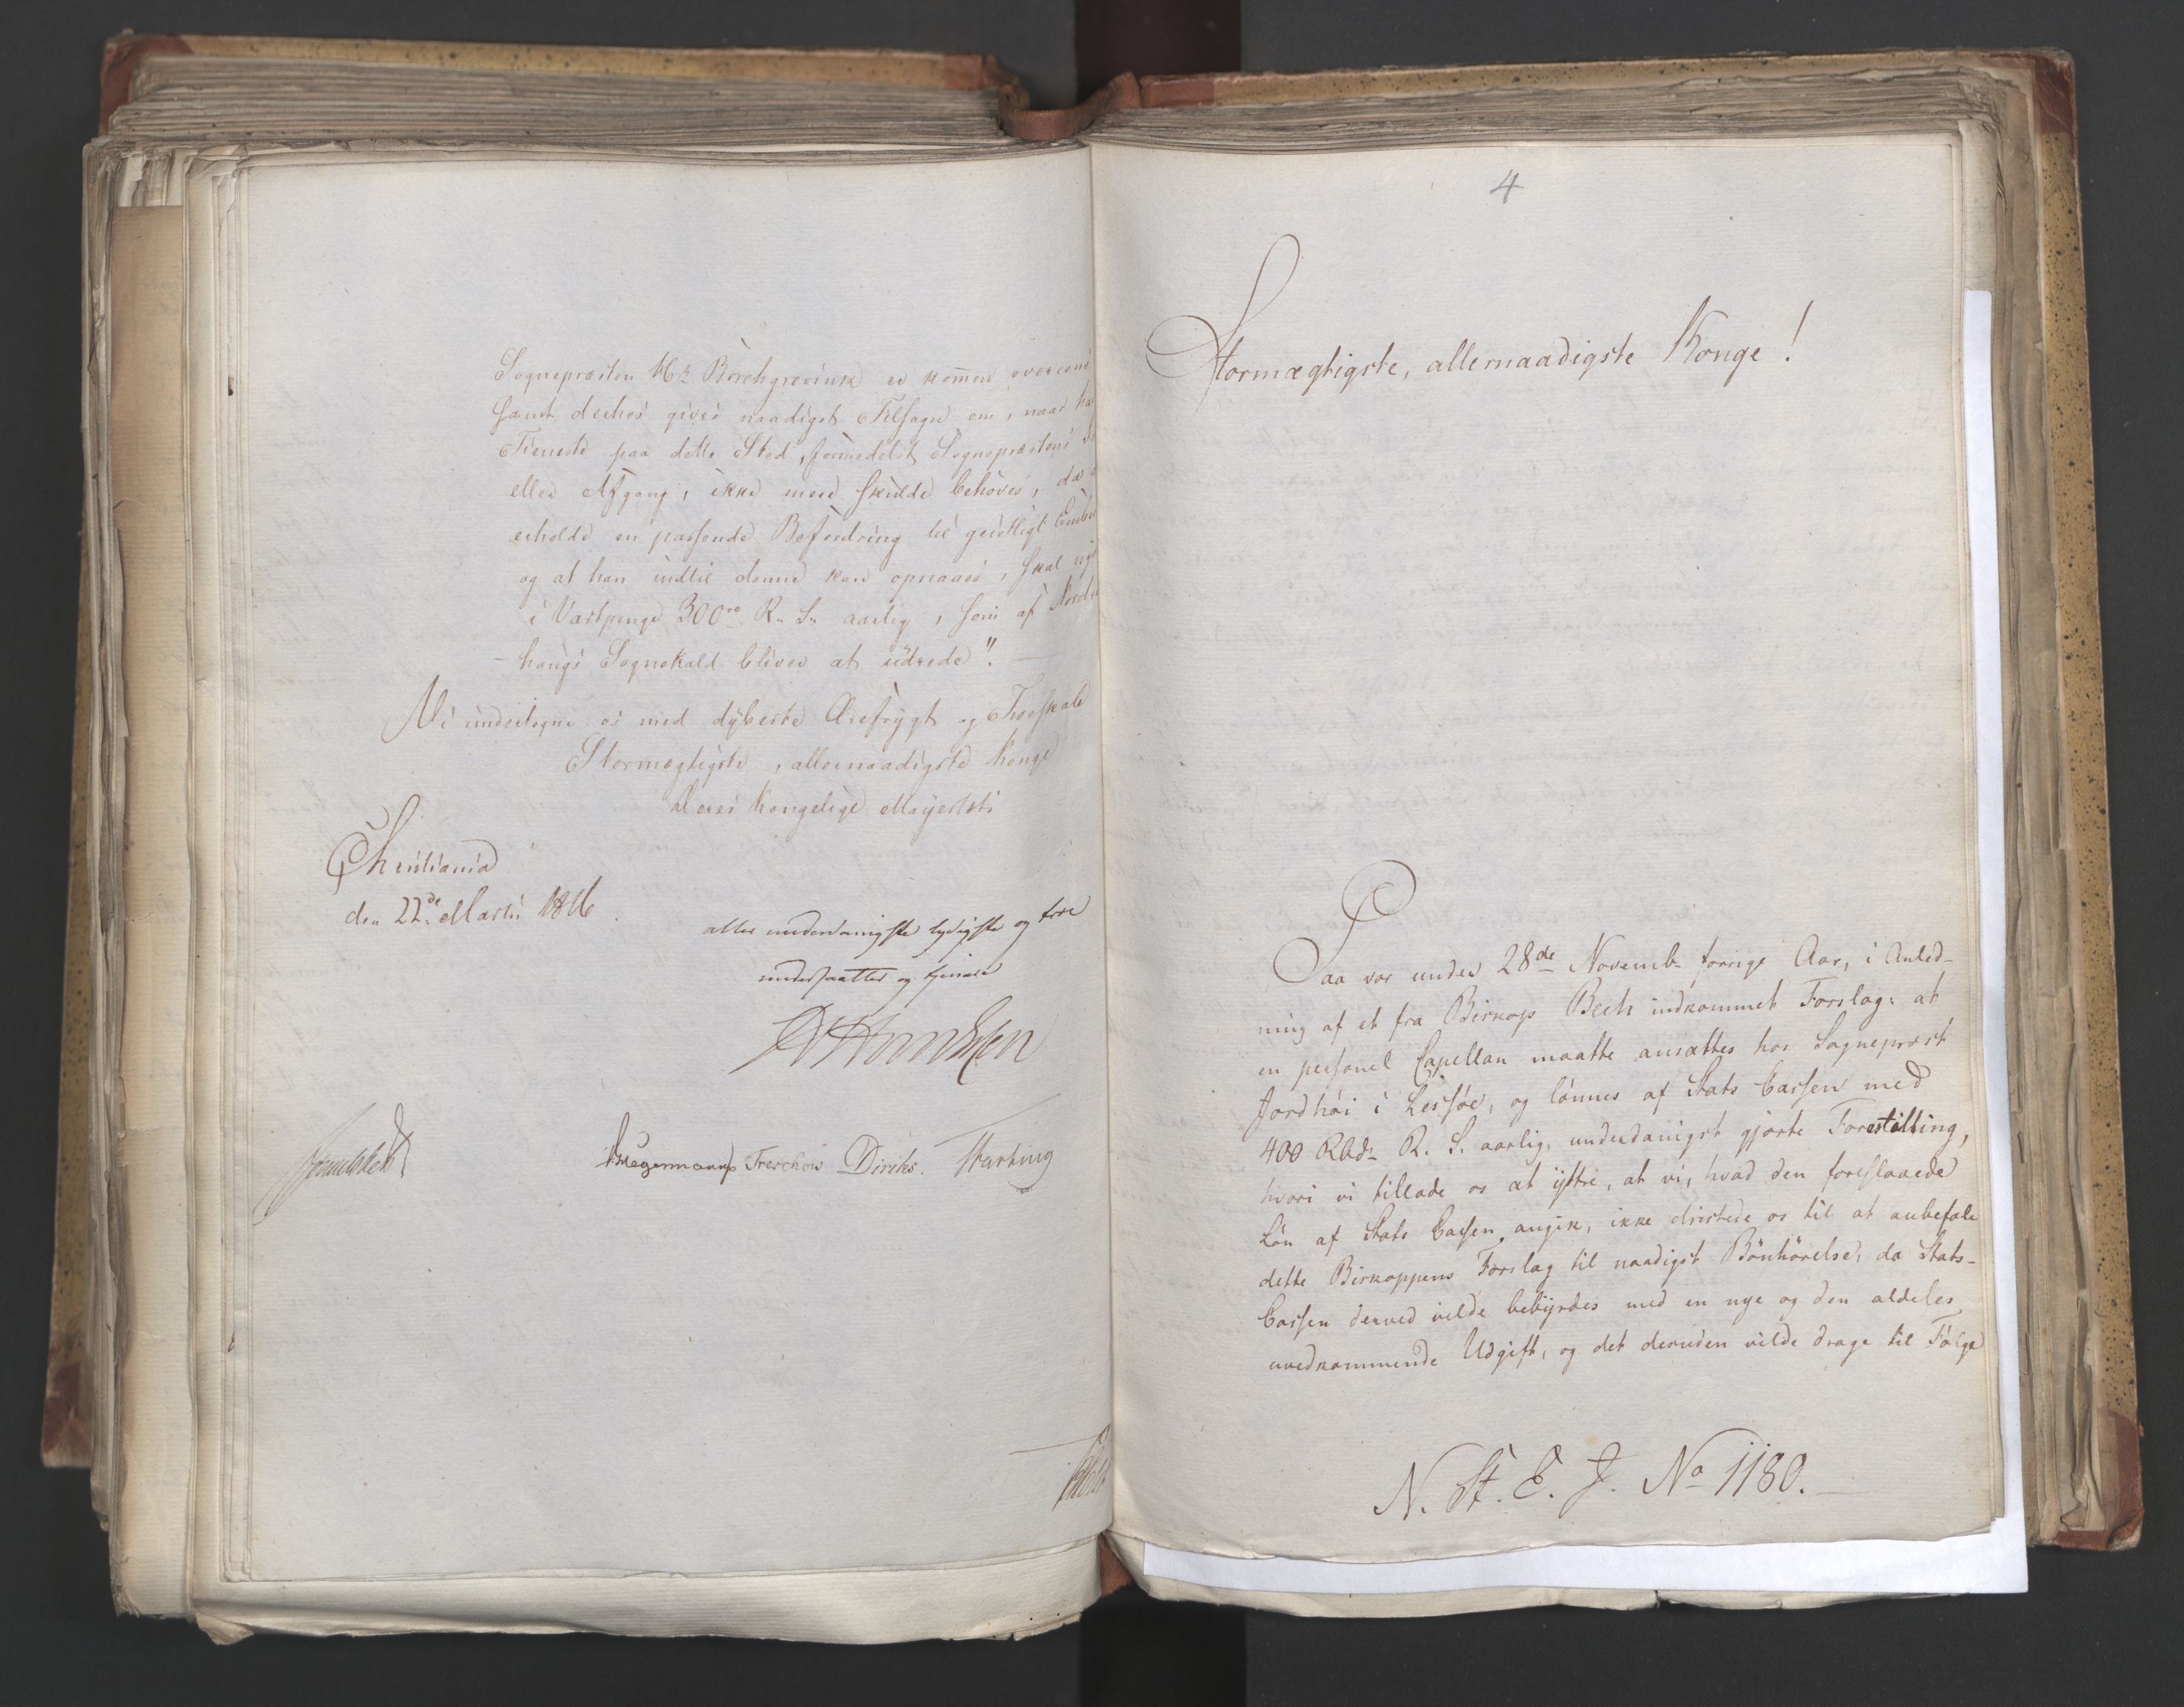 Sognepræsten Hr Borchgrevink er kommen overeens
samt derhos gives naadigst Tilsagn om, naar ha
Tieneste paa dette Sted, formedelst Sognepræstens
eller Afgang, ikke mere skulde behøves, da
erholde en passende Befordring til geistligt Embe
og at han indtil denne kan opnaaes, skal ny
i Vartpenge 300re R. S. aarlig, som af Nord
houg's Sognekald bliver at udrede". —
Vi undertegne os med dybeste Ærefrygt og Troeskab
Stormægtigste, allernaadigste Konge
Deres Kongelige Mayestæts
Christiania
den 22de Martii 1816
aller underdanigste lydigste og troe
undersaatter og tjenere
Sommerhielm
Krogemann Treschow Diriks. Hartvig
4
Stormægtigste, allernaadigste Konge!
Paa vor under 28de Novemb. forrige Aar, i Anled-
ning af et fra Biskop Bech indkommet Forslag: at
en personel Capellan maatte ansættes hos Sogneprest
Jordhøi i Lessøe, og lønnes af Stats Cassen med
400 Rbdr R. S. aarlig, underdanigst gjorte Forestilling,
hvori vi tillade os at yttre, at vi, hvad den foreslaaede
Løn af Stats Cassen angik, ikke dristede os til at anbefale
dette Biskoppens Forslag til naadigst Bønhørelse, da Stats-
Cassen derved vilde bebyrdes med en nye og den aldeles
uvedkommende Udgift, og det deruden vilde drage til Følge
N. St. E. J. No 1180. —